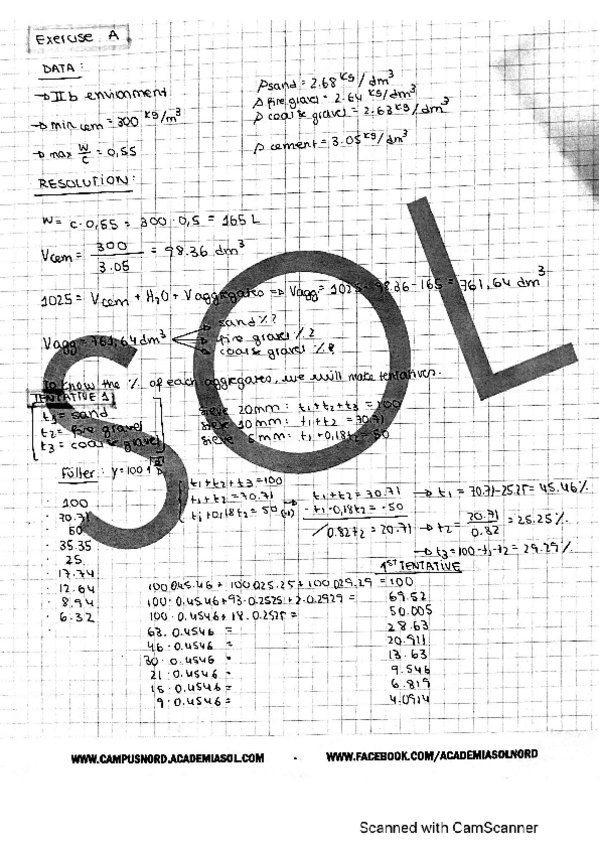 Exercise A
DATA:
→ IIb environment
→ min cem = 300 kg/m³
→ max W/C = 0,55
ρ sand = 2.68 kg/dm³
ρ fine gravel = 2.64 kg/dm³
ρ coarse gravel = 2.63 kg/dm³
ρ cement = 3.05 kg/dm³
RESOLUTION:
W = c · 0,55 = 300 · 0,5 = 165 L
Vcem = 300 / 3.05 = 98.36 dm³
1025 = Vcem + H₂O + Vaggregates ⇒ Vagg = 1025 - 98.36 - 165 = 761,64 dm³
Vagg = 761,64 dm³
sand %?
fine gravel %?
coarse gravel %?
To know the % of each aggregates, we will make tentatives.
TENTATIVE 1
t₁ = sand
t₂ = fine gravel
t₃ = coarse gravel
Sieve 20mm: t₁ + t₂ + t₃ = 100
Sieve 10mm: t₁ + t₂ = 70.71
Sieve 5mm: t₁ + 0,18t₂ = 50
Füller: y = 100
t₁ + t₂ + t₃ = 100
t₁ + t₂ = 70.71
t₁ + 0,18t₂ = 50 (-1)
t₁ + t₂ = 70.71
-t₁ - 0,18t₂ = -50
0.82t₂ = 20.71
→ t₁ = 70.71 - 25.25 = 45.46%
→ t₂ = 20.71 / 0.82 = 25.25%
→ t₃ = 100 - t₁ - t₂ = 29.29%
100
70.71
50
35.35
25
17.74
12.64
8.94
6.32
1ST TENTATIVE
100·0.45.46 + 100·0.25.25 + 100·0.29.29 = 100
100 · 0.4546 + 93 · 0.2525 + 2 · 0.2929 = 69.52
100 · 0.4546 + 18 · 0.2525 = 50.005
63 · 0.4546 = 28.63
46 · 0.4546 = 20.911
30 · 0.4546 = 13.63
21 · 0.4546 = 9.546
15 · 0.4546 = 6.819
9 · 0.4546 = 4.0914
SOL
WWW.CAMPUSNORD.ACADEMIASOL.COM - WWW.FACEBOOK.COM/ACADEMIASOLNORD
Scanned with CamScanner